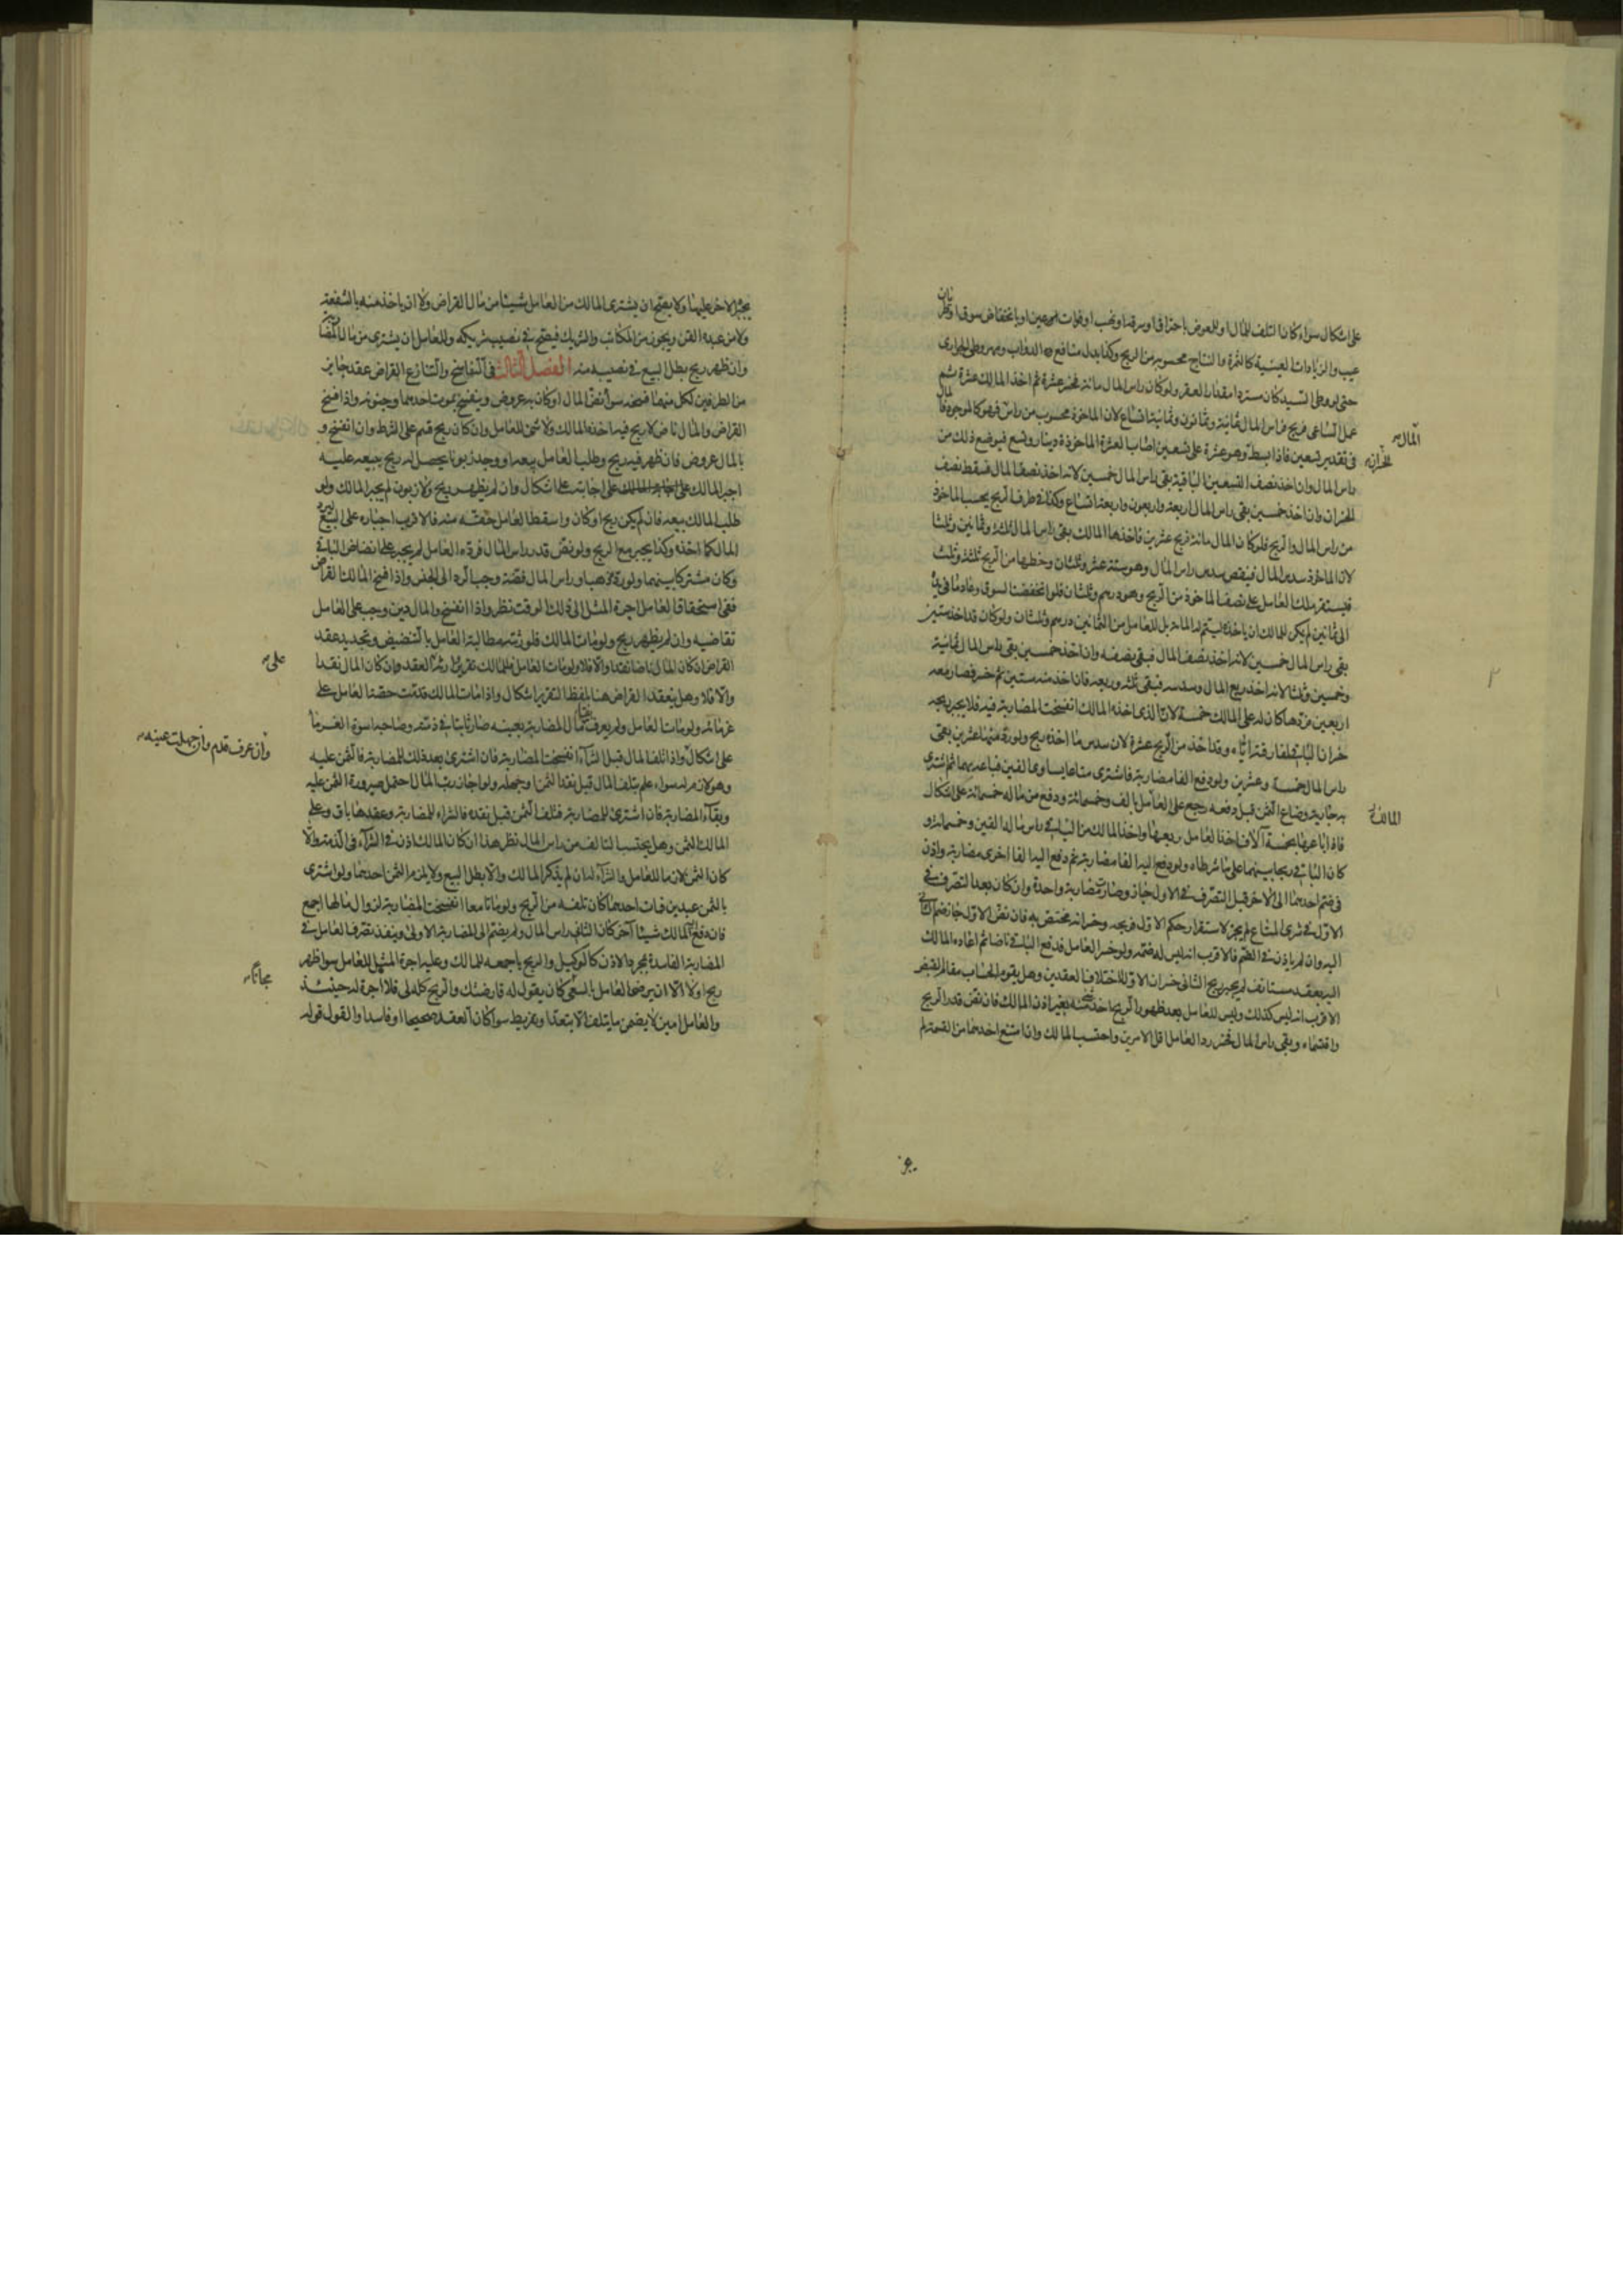 على اشكال سواء كان التلف للمال او للعوض باحتراق او سرقة او نهب او فوات عين او بانخفاض سوق او طريان
عيب والزيادات العينية كالثمرة والنتاج محسوبة من الربح وكذا بدل منافع الدواب ومهر وطى الجوارى
حتى لو وطى السيد كان مستردا مقدار العقر ولو كان راس المال مائة فخسر عشرة ثم اخذ المالك عشرة ثم
عمل الساعى فربح فراس المال ثمانية وثمانون وثمانية اتساع لان الماخوذ محسوب من راس المال فهو كالموجود
المال
فى تقدير تسعين فاذا بسط وهو عشرة على تسعين اصاب العشرة الماخوذة دينار وتسع فيوضع ذلك من
الخسران
راس المال وان اخذ نصف التسعين الباقية بقى راس المال خمسين لانه اخذ نصف المال فسقط نصف
الخسران وان اخذ خمسين بقى راس المال اربعة واربعون واربعة اتساع وكذا فى طرف الربح يحسب الماخوذ
من راس المال والربح فلو كان المال مائة فربح عشرين فاخذها المالك بقى راس المال ثلثة وثمانين وثلثا
لان الماخوذ سدس المال فينقص سدس راس المال وهو ستة عشر وثلثان وحظها من الربح ثلثة وثلث
فيستقر ملك العامل على نصف الماخوذ من الربح وهو درهم وثلثان فلو انخفضت السوق وعاد ما فى يده
الى ثمانين لم يكن للمالك ان ياخذه ليتم له المائة بل للعامل من الثمانين درهم وثلثان ولو كان قد اخذ ستين
بقى راس المال خمسين لانه اخذ نصف المال فبقى نصفه وان اخذ خمسين بقى راس المال ثمانية
وخمسين وثلثا لانه اخذ ربع المال وسدسه فبقى ثلثه وربعه فان اخذ منه ستين ثم خسر فصار معه
اربعين فردها كان له على المالك خمسة لان الذى اخذه المالك انفسخت المضاربة فيه فلا يجبر بربحه
خسران الباقى لمفارقته اياه وقد اخذ من الربح عشرة لان سدس ما اخذه ربح ولو رد منها عشرين بقى
راس المال خمسة وعشرين ولو دفع الفا مضاربة فاشترى متاعا يساوى الفين فباعه بهما ثم اشترى
به جارية وضاع الثمن قبل دفعه رجع على العامل بالف وخمسمائة ودفع من ماله خمسمائة على اشكال
المالك
فاذا باعها بخمسة آلاف اخذ العامل ربعها واخذ المالك من الباقى راس ماله الفين وخمسمائة و
كان الباقى ربحا بينهما على ما شرطاه ولو دفع اليه الفا مضاربة ثم دفع اليه الفا اخرى مضاربة واذن
فى ضم احدهما الى الآخر قبل التصرف فى الاول جاز وصارت مضاربة واحدة وان كان بعد التصرف فى
الاول فى شرى المتاع لم يجز لاستقرار حكم الاول فربحه وخسرانه مختص به فان نض الاول جاز ضم الثانى
اليه وان لم ياذن فى الضم فالاقرب انه ليس له ضمه ولو خسر العامل فدفع الباقى ناضا ثم اعاده المالك
اليه بعقد مستانف لم يجبر ربح الثانى خسران الاول لاختلاف العقدين وهل يقوم الحساب مقام القبض
الاقرب انه ليس كذلك وليس للعامل بعد ظهور الربح اخذ شئ منه بغير اذن المالك فان نض قدر الربح
واقتسماه وبقى راس المال فخسر رد العامل اقل الامرين واحتسب المالك وان امتنع احدهما من القسمة لم
يجبر الآخر عليها ولا يصح ان يشترى المالك من العامل شيئا من مال القراض ولا ان ياخذ منه بالشفعة
ولا من عبده القن ويجوز من المكاتب والشريك فيصح فى نصيب شريكه وللعامل ان يشترى من مال القراض
وان ظهر ربح بطل البيع فى نصيبه منه الفصل الثالث فى التفاسخ والتنازع القراض عقد جايز
من الطرفين لكل منهما فسخه سواء نض المال او كان به عروض وينفسخ بموت احدهما وجنونه واذا فسخ
القراض والمال ناض لا ربح فيه اخذه المالك ولا شئ للعامل وان كان ربح قسم على الشرط وان انفسخ و
بالمال عروض فان ظهر فيه ربح وطلب العامل بيعه او وجد زبونا يحصل له ربح ببيعه عليه
اجبر المالك على اجابته على اشكال وان لم يظهر ربح ولا زبون لم يجبر المالك ولو
طلب المالك بيعه فان لم يكن ربح او كان واسقط العامل حقه منه فالاقرب اجباره على البيع ليرد
المال كما اخذه وكذا يجبر مع الربح ولو نض قدر راس المال فرده العامل لم يجبر على انضاض الباقى
وكان مشتركا بينهما ولو رد ذهبا وراس المال فضة وجب الرد الى الجنس واذا فسخ المالك القراض
ففى استحقاق العامل اجرة المثل الى ذلك الوقت نظر واذا انفسخ والمال دين وجب على العامل
تقاضيه وان لم يظهر ربح ولو مات المالك فلورثته مطالبة العامل بالتنضيض وتجديد عقد
القراض ان كان المال ناضا نقدا والا فلا ولو مات العامل فللمالك تقرير وارثه العقد وان كان المال نقدا
على
والا فلا وهل ينعقد القراض هنا بلفظ التقرير اشكال واذا مات المالك قدمت حصة العامل على
غرمائه ولو مات العامل ولم يعرف بقاء مال المضاربة بعينه صار ثابتا فى ذمته وصاحبه اسوة الغرماء
وان عرف قدم وان جهلت عينه
على اشكال واذا تلف المال قبل الشراء انفسخت المضاربة فان اشترى بعد ذلك للمضاربة فالثمن عليه
وهو لازم له سواء علم بتلف المال قبل نقد الثمن او جهله ولو اجاز رب المال احتمل صيرورة الثمن عليه
وبقاء المضاربة فان اشترى للمضاربة فتلف الثمن قبل نقده فالشراء للمضاربة وعقدها باق وعلى
المالك الثمن وهل يحتسب التالف من راس المال نظر هذا ان كان المالك اذن فى الشراء فى الذمة والا
كان الثمن لازما للعامل والشراء له ان لم يذكر المالك والا بطل البيع ولا يلزم الثمن احدهما ولو اشترى
بالثمن عبدين فمات احدهما كان تلفه من الربح ولو ماتا معا انفسخت المضاربة لزوال مالها اجمع
فان دفع المالك شيئا آخر كان الثانى راس المال ولم يضم الى المضاربة الاولى وينفذ تصرف العامل فى
المضاربة الفاسدة بمجرد الاذن كالوكيل والربح باجمعه للمالك وعليه اجرة المثل للعامل سواء ظهر
ربح او لا الا ان يرضى العامل بالسعى كان يقول له قارضتك والربح كله لى فلا اجرة له حينئذ
مجانا
والعامل امين لا يضمن ما يتلف الا بتعد او تفريط سواء كان العقد صحيحا او فاسدا والقول قوله